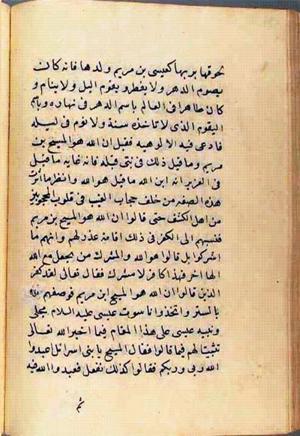 لحوقها بربها كعيسى بن مريم ولدها فانه كان
يصوم الدهر ولا يفطر ويقوم الليل ولا ينام و
كان ظاهرا فى العالم باسم الدهر فى نهاره وباسم
القيوم الذى لا تاخذه سنة ولا نوم فى ليله
فادعى فيه الالوهية فقيل ان الله هو المسيح بن
مريم وما قيل ذلك فى نبى قبله فانه غاية ما قيل
فى العزير انه ابن الله ما قيل هو الله وانظر ما اثرت
هذه الصفة من خلف حجاب الغيب فى قلوب المحجوبين
من اهل الكشف حتى قالوا ان الله هو المسيح بن مريم
فنسبهم الى الكفر فى ذلك اقامة عذر لهم وانهم ما
اشركوا بل قالوا هو الله والمشرك من يجعل مع الله
الها اخر فهذا كافر لا مشرك فقال تعالى لقد كفر
الذين قالوا ان الله هو المسيح ابن مريم فوصفهم
بالستر واتخذوا ناسوت عيسى عليه السلام مجلى
ونبه عيسى على هذا المقام فيما اخبر الله تعالى
تثبيتا لهم فيما قالوا فقال المسيح يا بنى اسرائيل اعبدوا
الله ربى وربكم فقالوا كذلك نفعل فعبدوا الله فيه
ثم